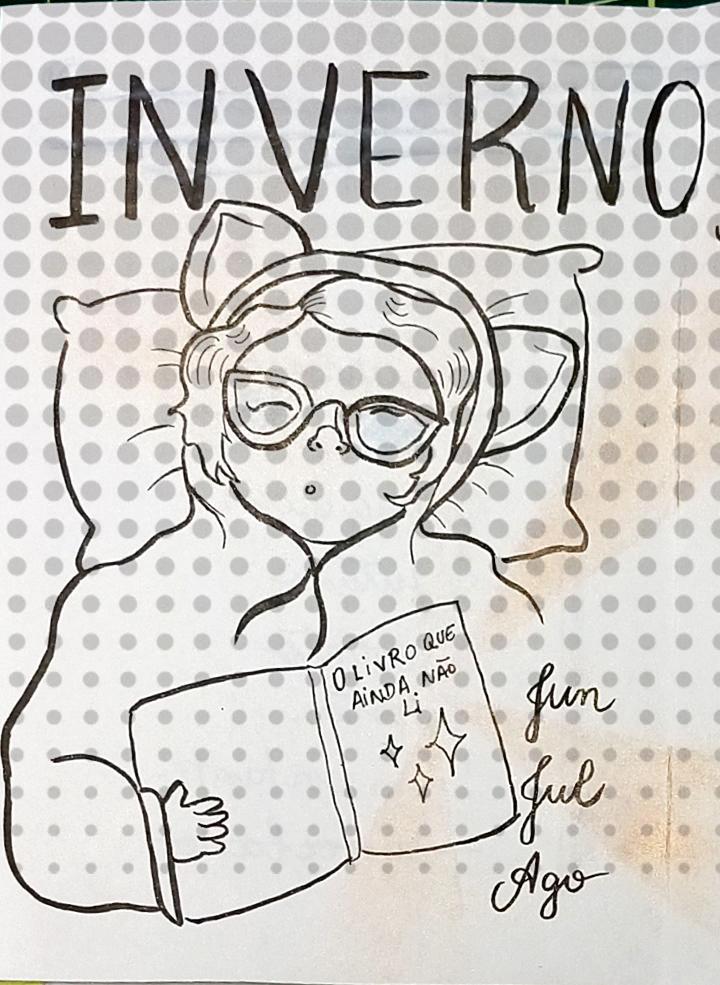 INVERNO
O LIVRO QUE
AINDA NÃO
LI
Jun
Jul
Ago